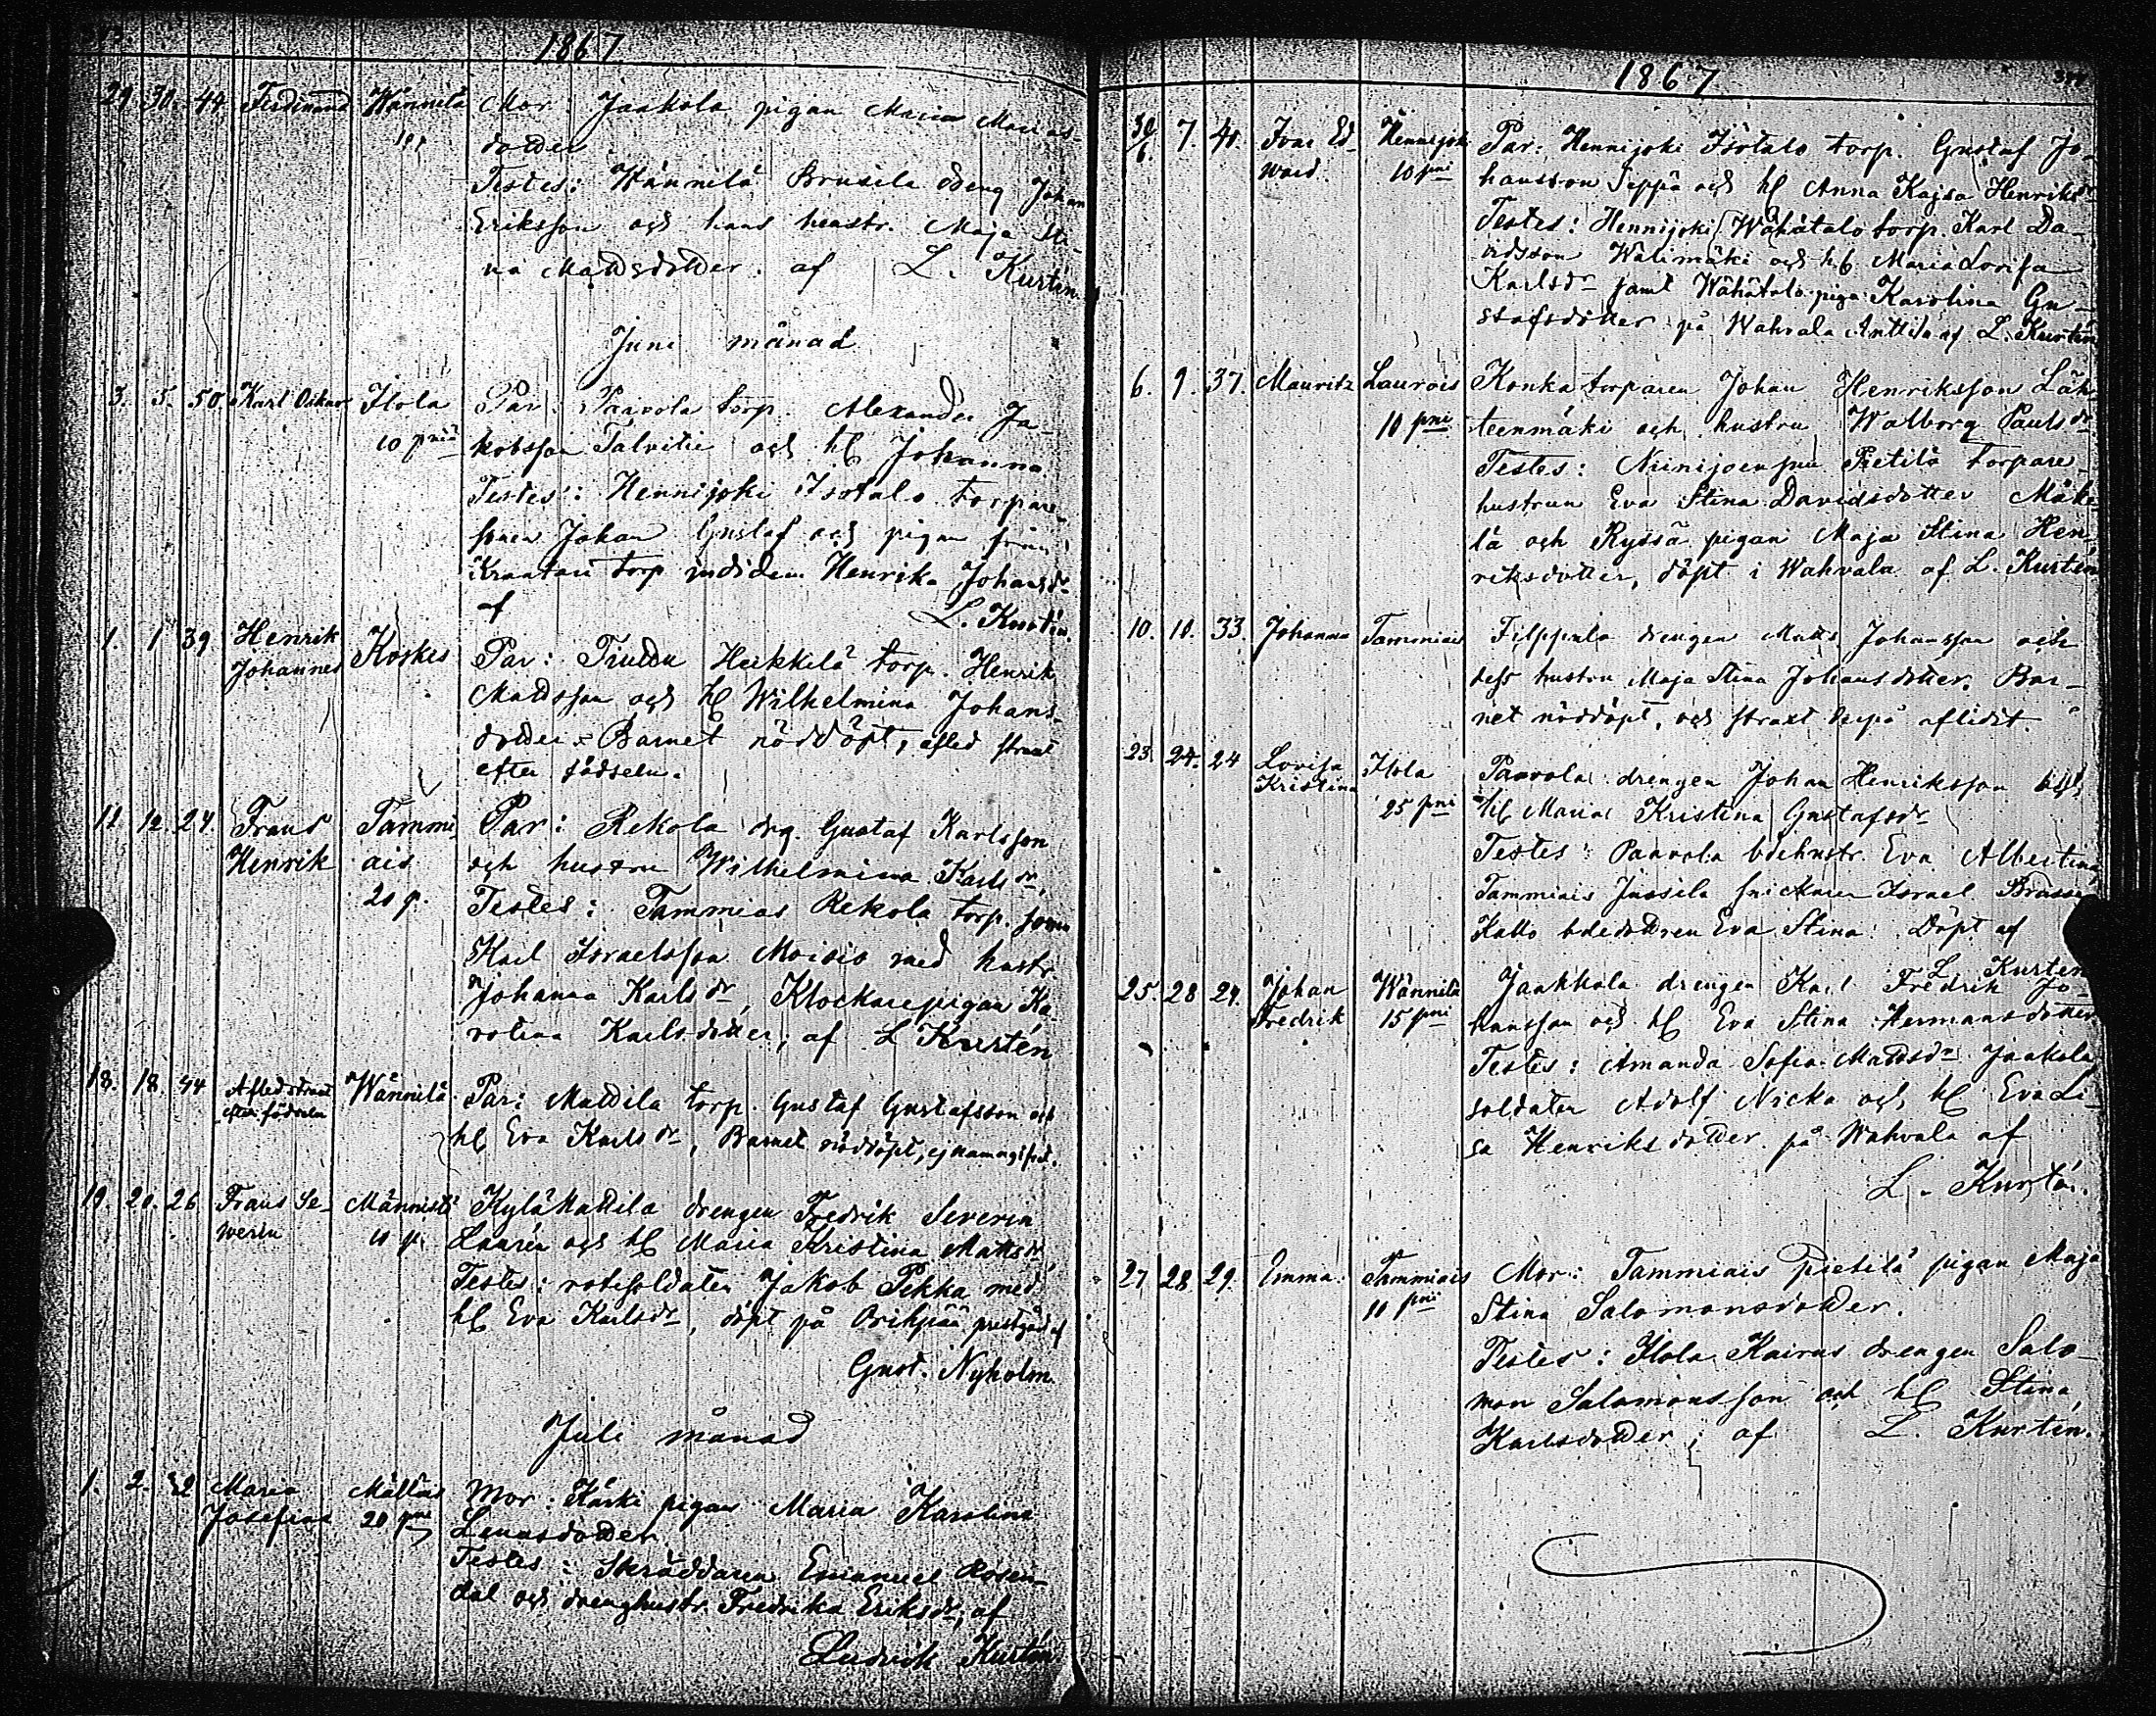 1867.
29 30. 44 Ferdinand Wännilä Mor: Jaakola pigan Maria Marias-
dotter.
Testes: Wännilä Brusila dreng Johan
Eriksson och hans hustr. Maja Sti-
na Mattsdotter. af L. Kurtén.
Juni månad
3. 5. 50 Karl Oskar Ilola Par: Paavola torp. Alexander Ja-
10 pni kobsson Talvitie och hu Johanna
Testes: Hennijoki Isotalo torpare-
sonen Johan Gustaf och pigan från
torp indidem Henrika Johansdr
af L. Kurtén.
1. 1 39 Henrik Johannes Koskes Par: Heikkilä torp. Henrik
Mattsson och hu Wilhelmina Johans-
dotter. Barnet nöddöpt, afled straxt
efter födseln.
12. 12. 24. Frans Tammi- Par: Rekola drg. Gustaf Karlsson
Henrik ais och hustru Wilhelmina Karlsdr,
20 p. Testes: Tammiais Rekola torp. sonen
Karl Israelsson Moisio med hustr.
Johanna Karlsdr, Klockarepigan Ka-
rolina Karlsdotter, af L Kurtén
18. 18. 44 Afled straxt Wännilä Par: Mattila torp. Gustaf Gustafsson och
efter födseln hu Eva Karlsdr, Barnet nöddöpt, ej
19. 20. 26 Frans Se- Männistö Kylämattila drengen Fredrik Severin
werin 10 p. Laurén och hu Maria Kristina Mattsdr,
Testes: rotesoldaten Jakob Pekka med
hu Eva Karlsdr, döpt på Orihpää prestgård af
Gust. Nyholm.
Juli månad
1. 2. 32 Maria Mältäs Mor: Käski pigan Maria Karolina
Josefina 20 pni
Testes: Skräddaren Emanuel Rosen-
dal och drenghustr. Fredrika Eriksdr, af
Ludvik Kurtén
1867.
30/6. 7. 41. Ivar Ed- Hennijoki Par: Hennijoki Isotalo torp. Gustaf Jo-
ward. 10 pni hansson Seppä och hu Anna Kajsa Henriksdr
Testes: Hennijoki Wähätalo torp. Karl Da-
vidsson Walimäki och hu Maria Lovisa
Karlsdr samt Wähätalo piga Karolina Gu-
stafsdotter på Wahvala Anttila af L. Kurtén
6. 9. 37. Mauritz Laurois Konka torparen Johan Henriksson Läh-
10 pni teenmäki och hustru Walborg Paulsdr
Testes: Niinijoensuu Pietilä torpare-
hustrun Eva Stina Davidsdotter Mäke-
lä och Ryssä pigan Maja Stina Hen-
riksdotter, döpt i Wahvala af L. Kurtén
10. 10. 33. Johanna Tammiais Filppula drengen Matts Johansson och
dess hustru Maja Stina Johansdotter. Bar-
net nöddöpt, och straxt derpå aflidit.
23. 24. 24 Lovisa Ilola Paavola drengen Johan Henriksson och
Kristina 25 pni hu Maria Kristina Gustafsdr
Testes: Paavola bdehustr. Eva Albertina,
Tammiais Jussila snickaren Israel
Katto bdedottren Eva Stina. Döpt af
L. Kurtén
25. 28 24. Johan Wännilä Jaakkola drengen Karl Fredrik Jo-
Fredrik 15 pni hansson och hu Eva Stina Hermansdotter
Testes: Amanda Sofia Mattsdr Jaakola
soldaten Adolf Nicka och hu Eva Li-
sa Henriksdotter på Wahvala af
L. Kurtén.
27 28. 29. Emma. Tammiais Mor: Tammiais Pietilä pigan Maja
10 pni Stina Salomonsdotter.
Testes: Ilola Kairus drengen Salo-
mon Salomonsson och hu Stina
Karlsdotter; af L. Kurtén.